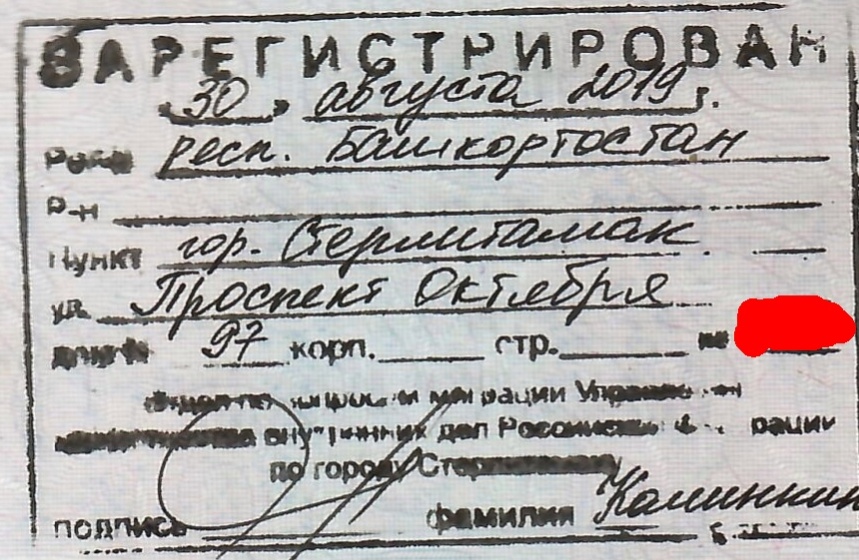 ЗАРЕГИСТРИРОВАН
"30" августа 2019 г.
респ. Башкортостан
Р-н
Пункт гор. Стерлитамак
ул. Проспект Октября
дом № 97 корп. стр. кв
Отдел по вопросам миграции Управления
Министерства внутренних дел Российской Федерации
по городу Стерлитамаку
подпись фамилия